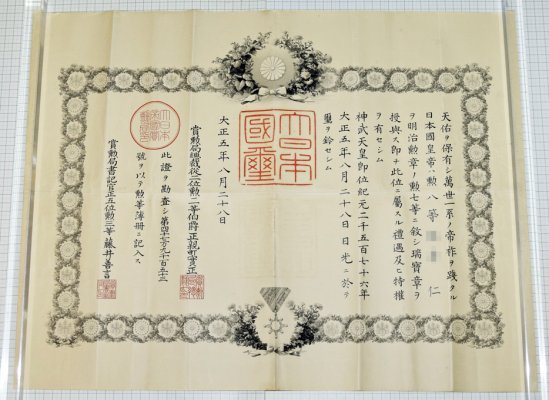 天佑ヲ保有シ萬世一系ノ帝祚ヲ踐タル
日本國皇帝ハ勲八等 仁
ヲ明治勲章ノ勲七等ニ敘シ瑞寶章ヲ
授與ス即チ此位ニ屬スル禮遇及ヒ特權
ヲ有セシム
神武天皇即位紀元二千五百七十六年
大正五年八月二十八日日光ニ於テ
璽ヲ鈐セシム
大日本國璽
大正五年八月二十八日
賞勲局總裁從二位勲一等伯爵正親町實正
此證ヲ勘査シ第四十七万九千百五十三
號ヲ以テ勲等簿册ニ記入ス
賞勲局書記官正五位勲三等藤井善言